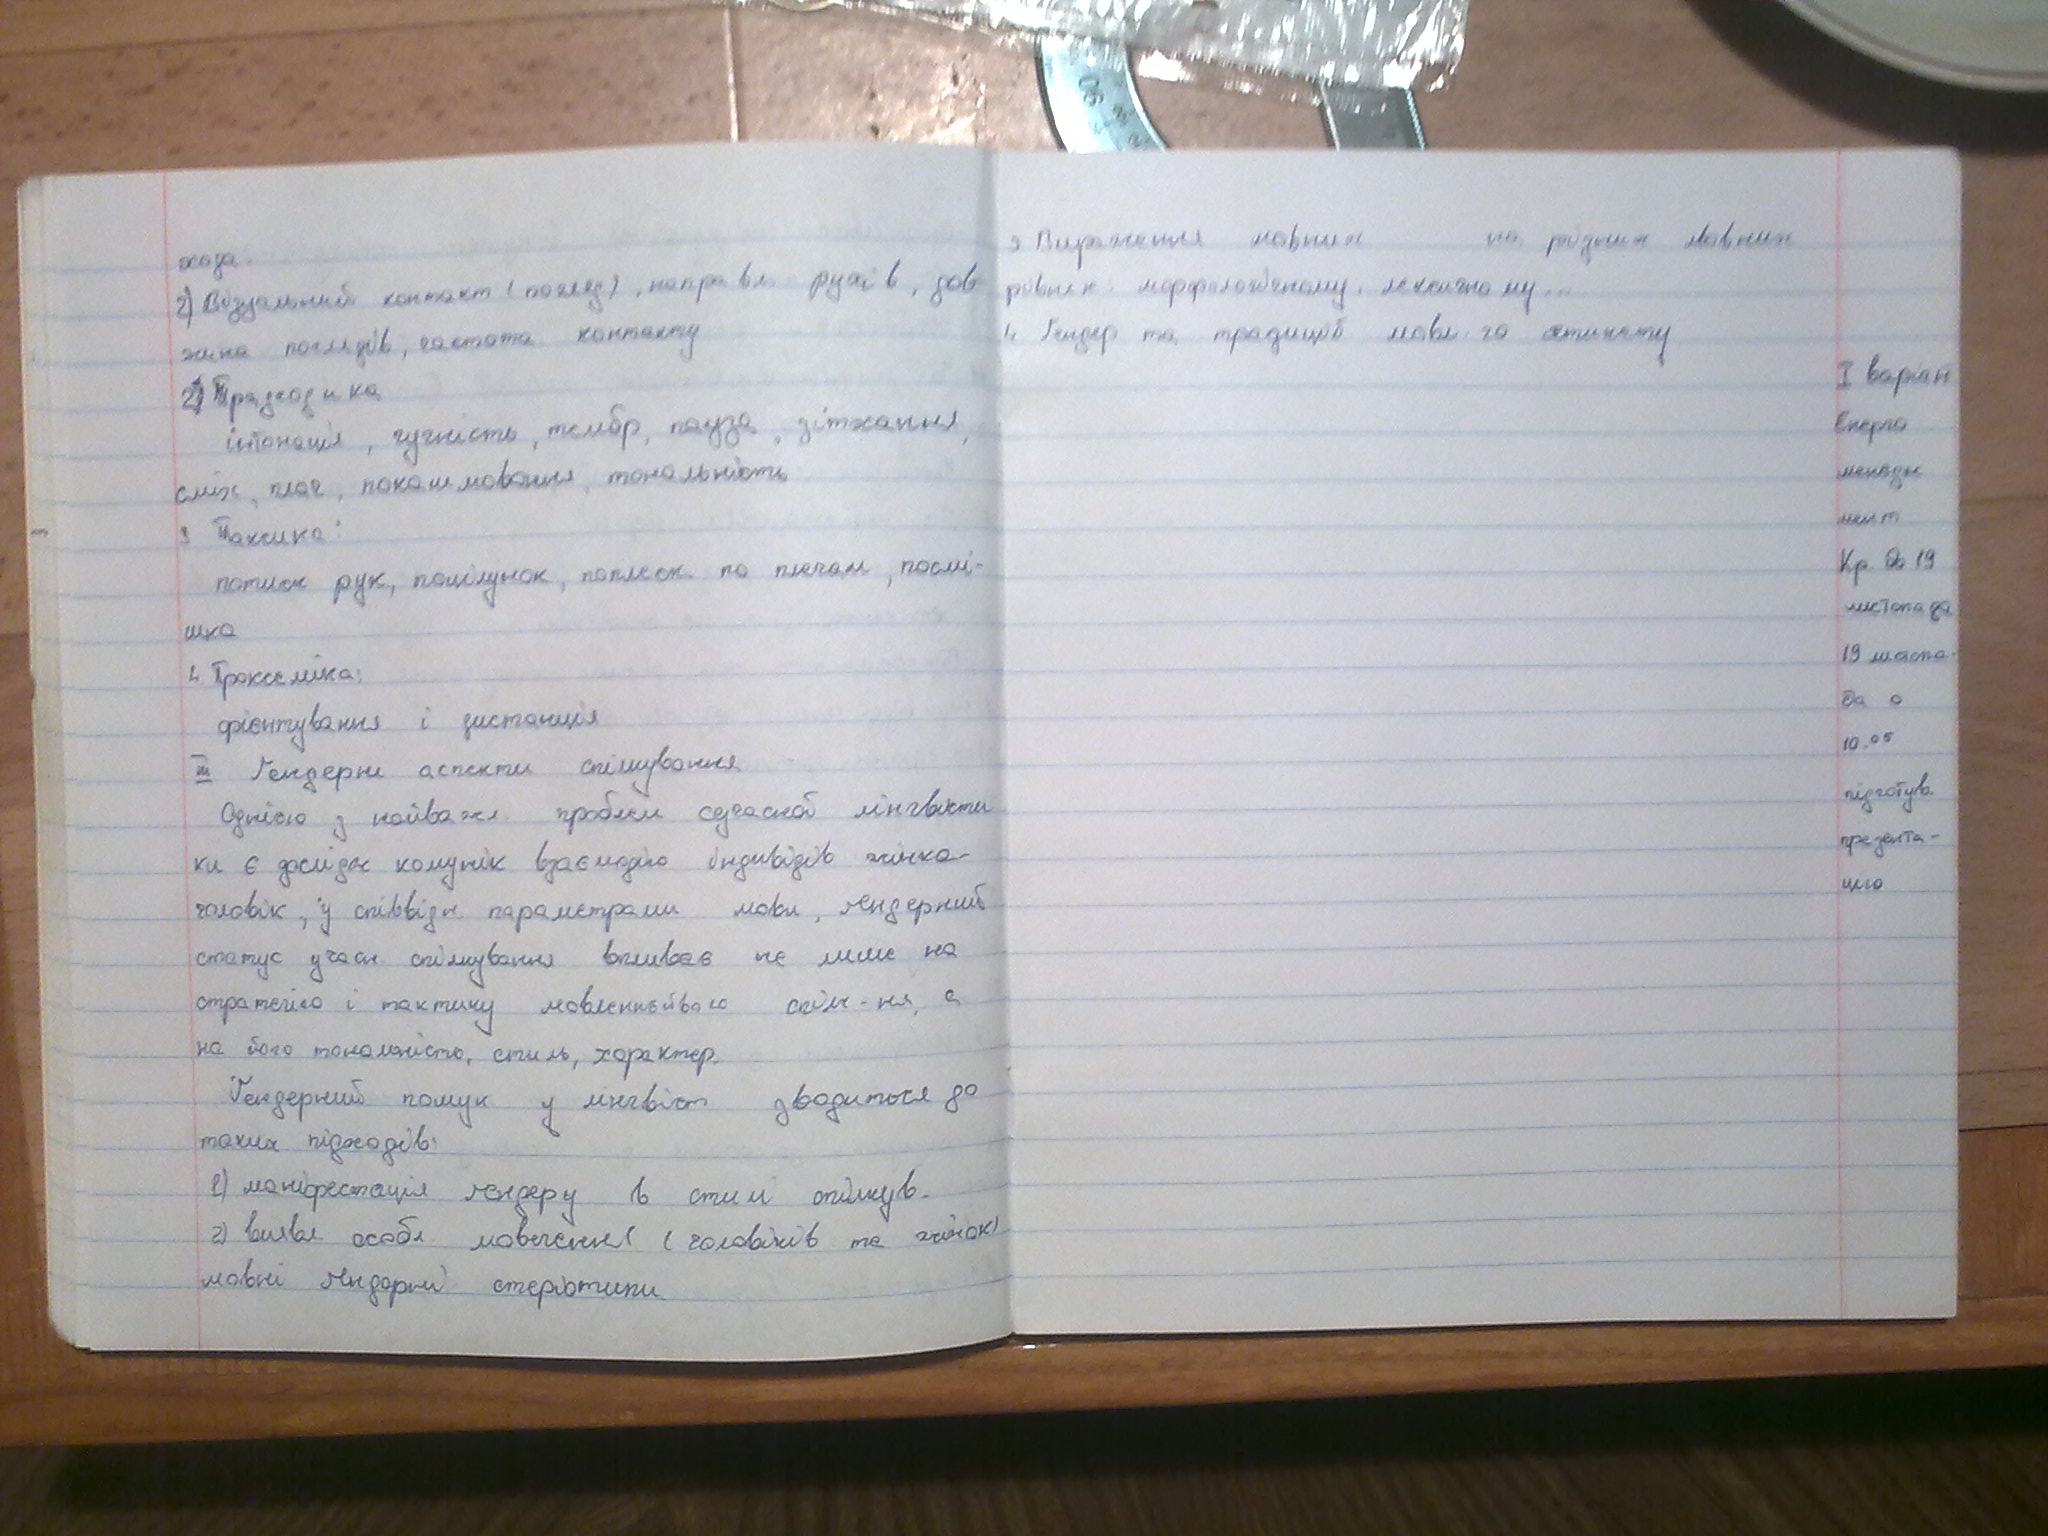 хода.
2) Візуальний контакт (погляд), направл рухів, дов
жина поглядів, частота контакту
2) Празодика
інтонація, гучність, тембр, пауза, зітхання,
сміх, плач, покашлювання, тональність
3 Таксика:
потиск рук, поцілунок, поплеск. по плечам, посмі-
шка
4 Проксеміка:
орієнтування і дистанція
III Гендерні аспекти спілкування
Однією з найважл. проблем сучасної лінгвісти
ки є дослідж комунік взаємодію індивідів жінка-
чоловік, у співвідн. параметрами мовл, гендерний
статус учасн спілкування впливає не лише на
стратегію і тактику спілк-ня, а
на його тональність, стиль, характер.
Гендерний пошук у лінгвіст зводиться до
таких підходів:
1) маніфестація гендеру в стилі спілкув.
2) виявл особл мовлення (чоловіків та жінок)
мовні гендерні стеріотипи
3 Вираження мовних на різних мовних
рівнях: морфологічному, лексичному...
4 Гендер та традиції мовл-го етикету
I варіан
Енерго
менедж
мент
Кр до 19
листопада
19 листопа-
да о
10.05
підготува
презента-
цію
90